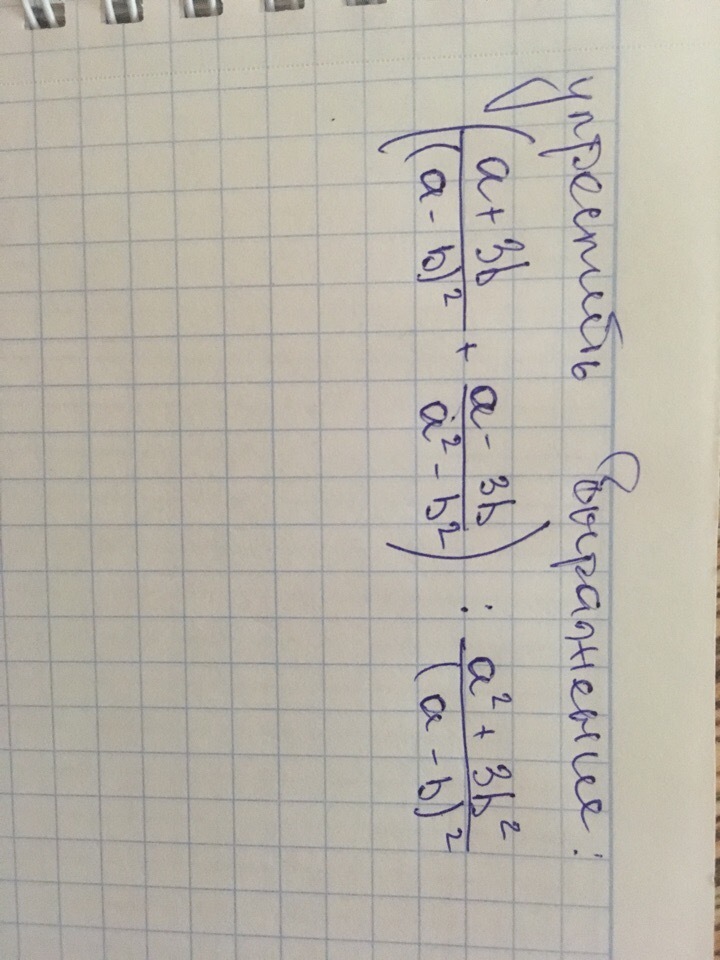 упростить выражение:
(a+3b/(a-b)² + a-3b/a²-b²) : a²+3b²/(a-b)²